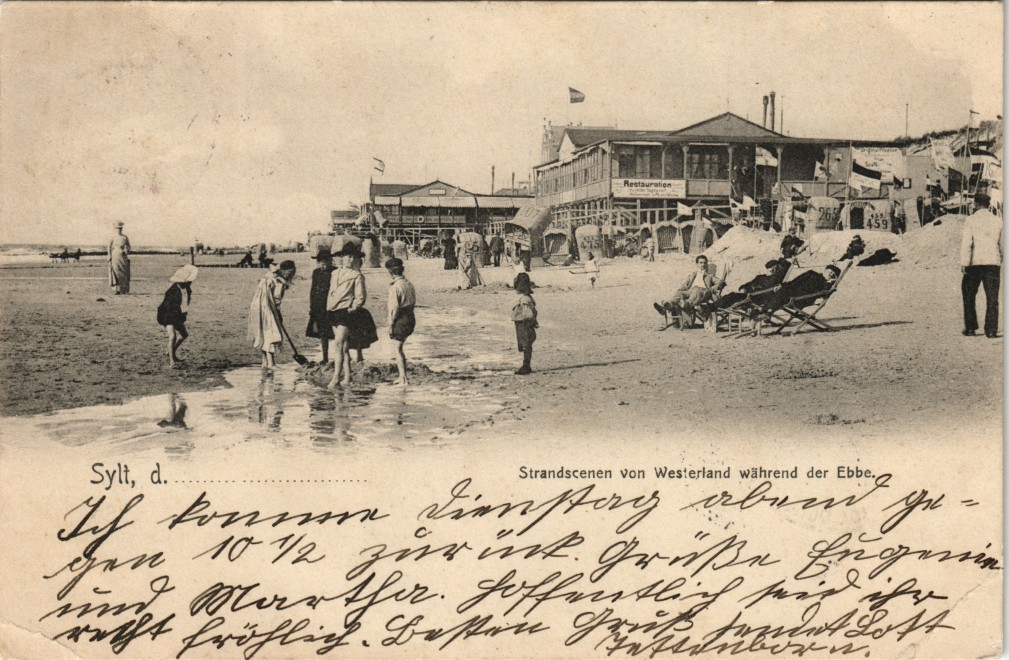 Restauration
263
459
Sylt, d.
Strandscenen von Westerland während der Ebbe.
Ich komme Dienstag abend ge-
gen 10 1/2 zurück. Grüße Eugenie
und Martha. Hoffentlich seid ihr
recht fröhlich. Besten Gruß sendet Lott
Tettenborn.